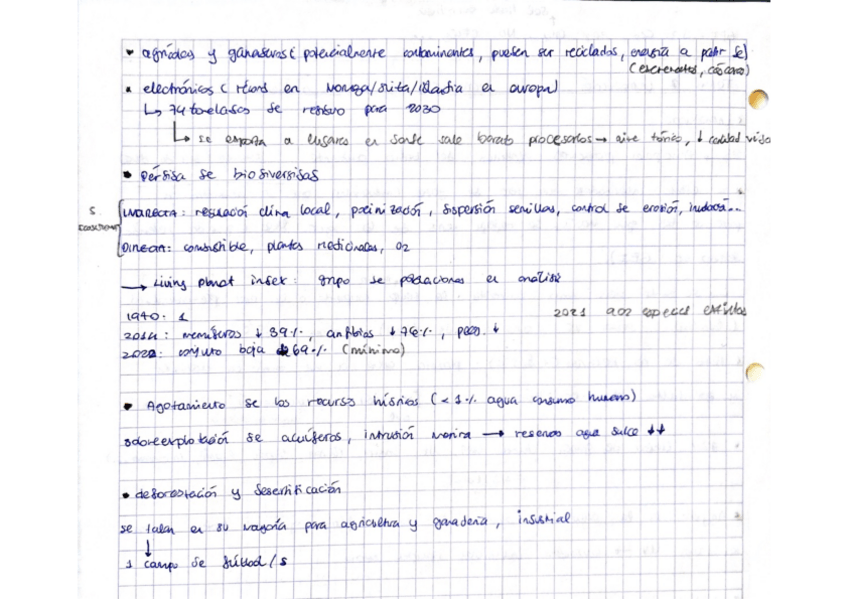 • agrícolas y ganaderos ( potencialmente contaminantes, pueden ser reciclados, energía a partir de)
(excrementos, cáscaras)
• electrónicos ( récord en Noruega/Suiza/Islandia en europa)
↳ 74 toneladas de residuo para 2030
↳ se exporta a lugares en donde sale barato procesarlos → aire tóxico, ↓ calidad vida
• pérdida de biodiversidad
INDIRECTA: regulación clima local, polinización, dispersión semillas, control de erosión, inundació...
S.
DIRECTA: combustible, plantas medicinales, O2
→ Living planet index: grupo de poblaciones en análisis
2021 902 especies extintas
1970: 1
2014: mamíferos ↓ 39%, anfibios ↓ 76%, peces ↓
2022: conjunto baja 69% (mínimo)
• Agotamiento de los recursos hídricos ( < 1% agua consumo humano)
sobreexplotación de acuíferos, intrusión marina → reservas agua dulce ↓↓
• deforestación y desertificación
se talan en su mayoría para agricultura y ganadería, industrial
↓
1 campo de fútbol / s